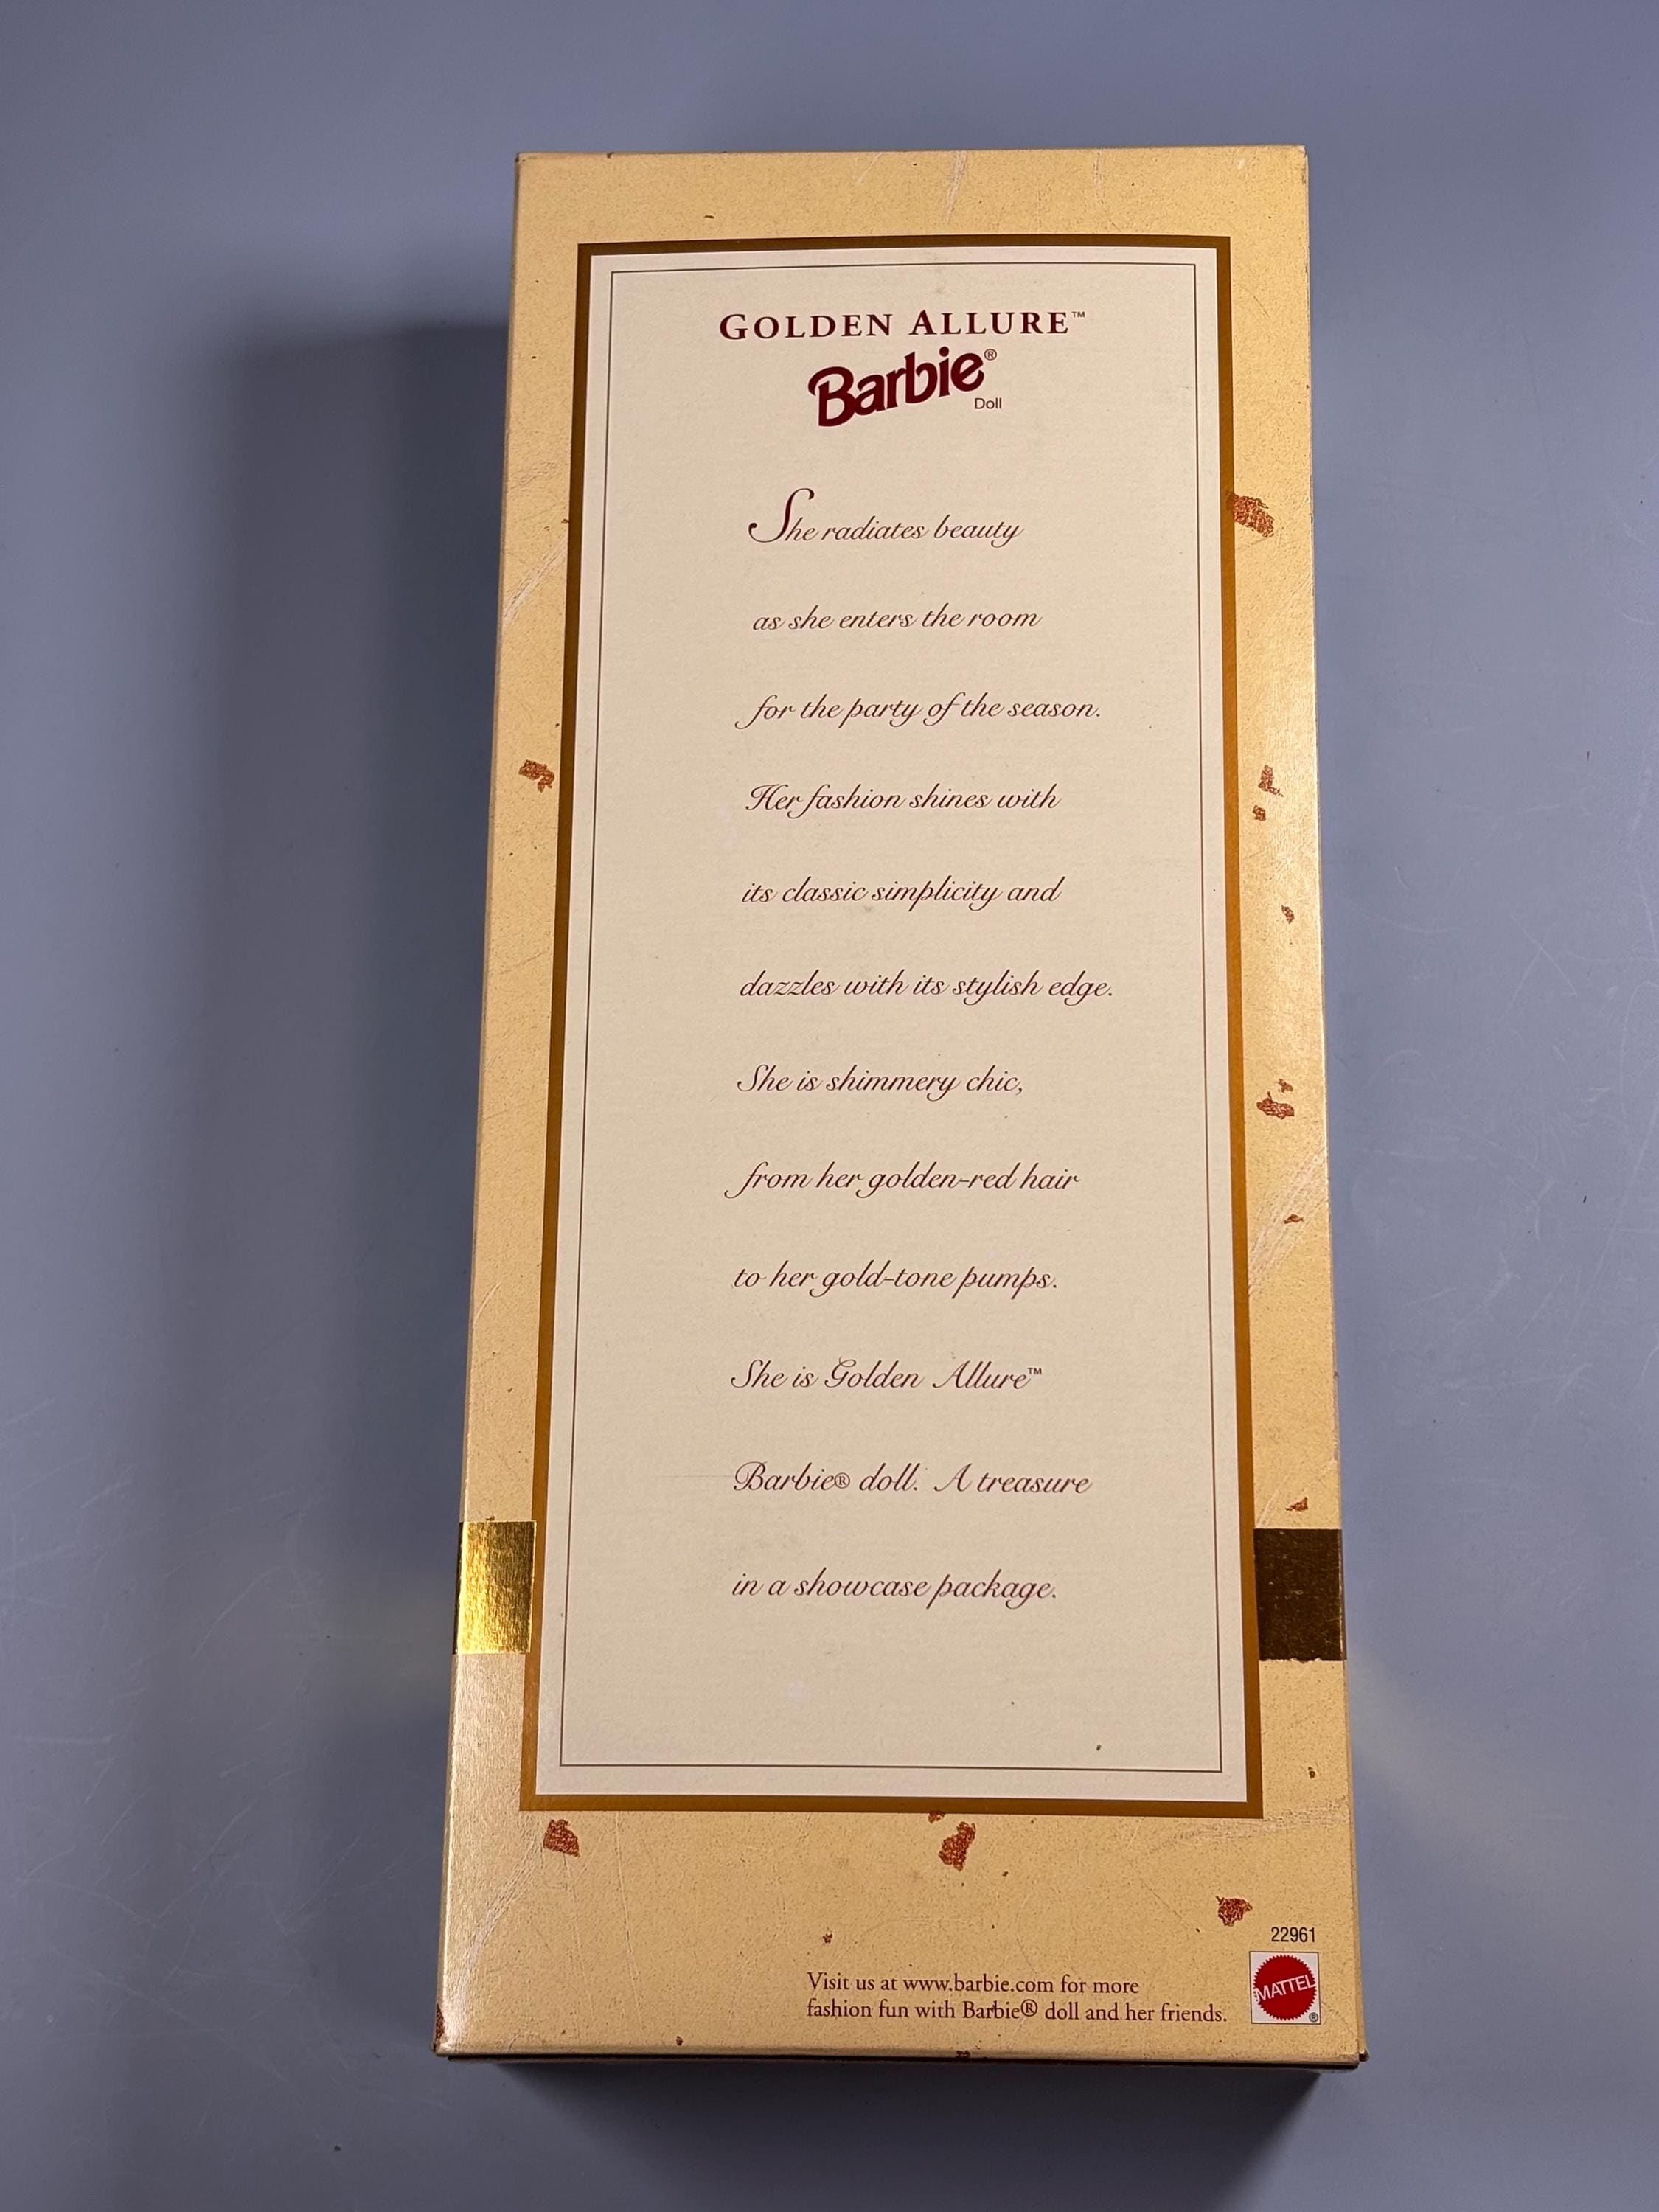 GOLDEN ALLURE™
Barbie®
Doll
She radiates beauty
as she enters the room
for the party of the season.
Her fashion shines with
its classic simplicity and
dazzles with its stylish edge.
She is shimmery chic,
from her golden-red hair
to her gold-tone pumps.
She is Golden Allure™
Barbie® doll. A treasure
in a showcase package.
22961
Visit us at www.barbie.com for more
fashion fun with Barbie® doll and her friends.
MATTEL®